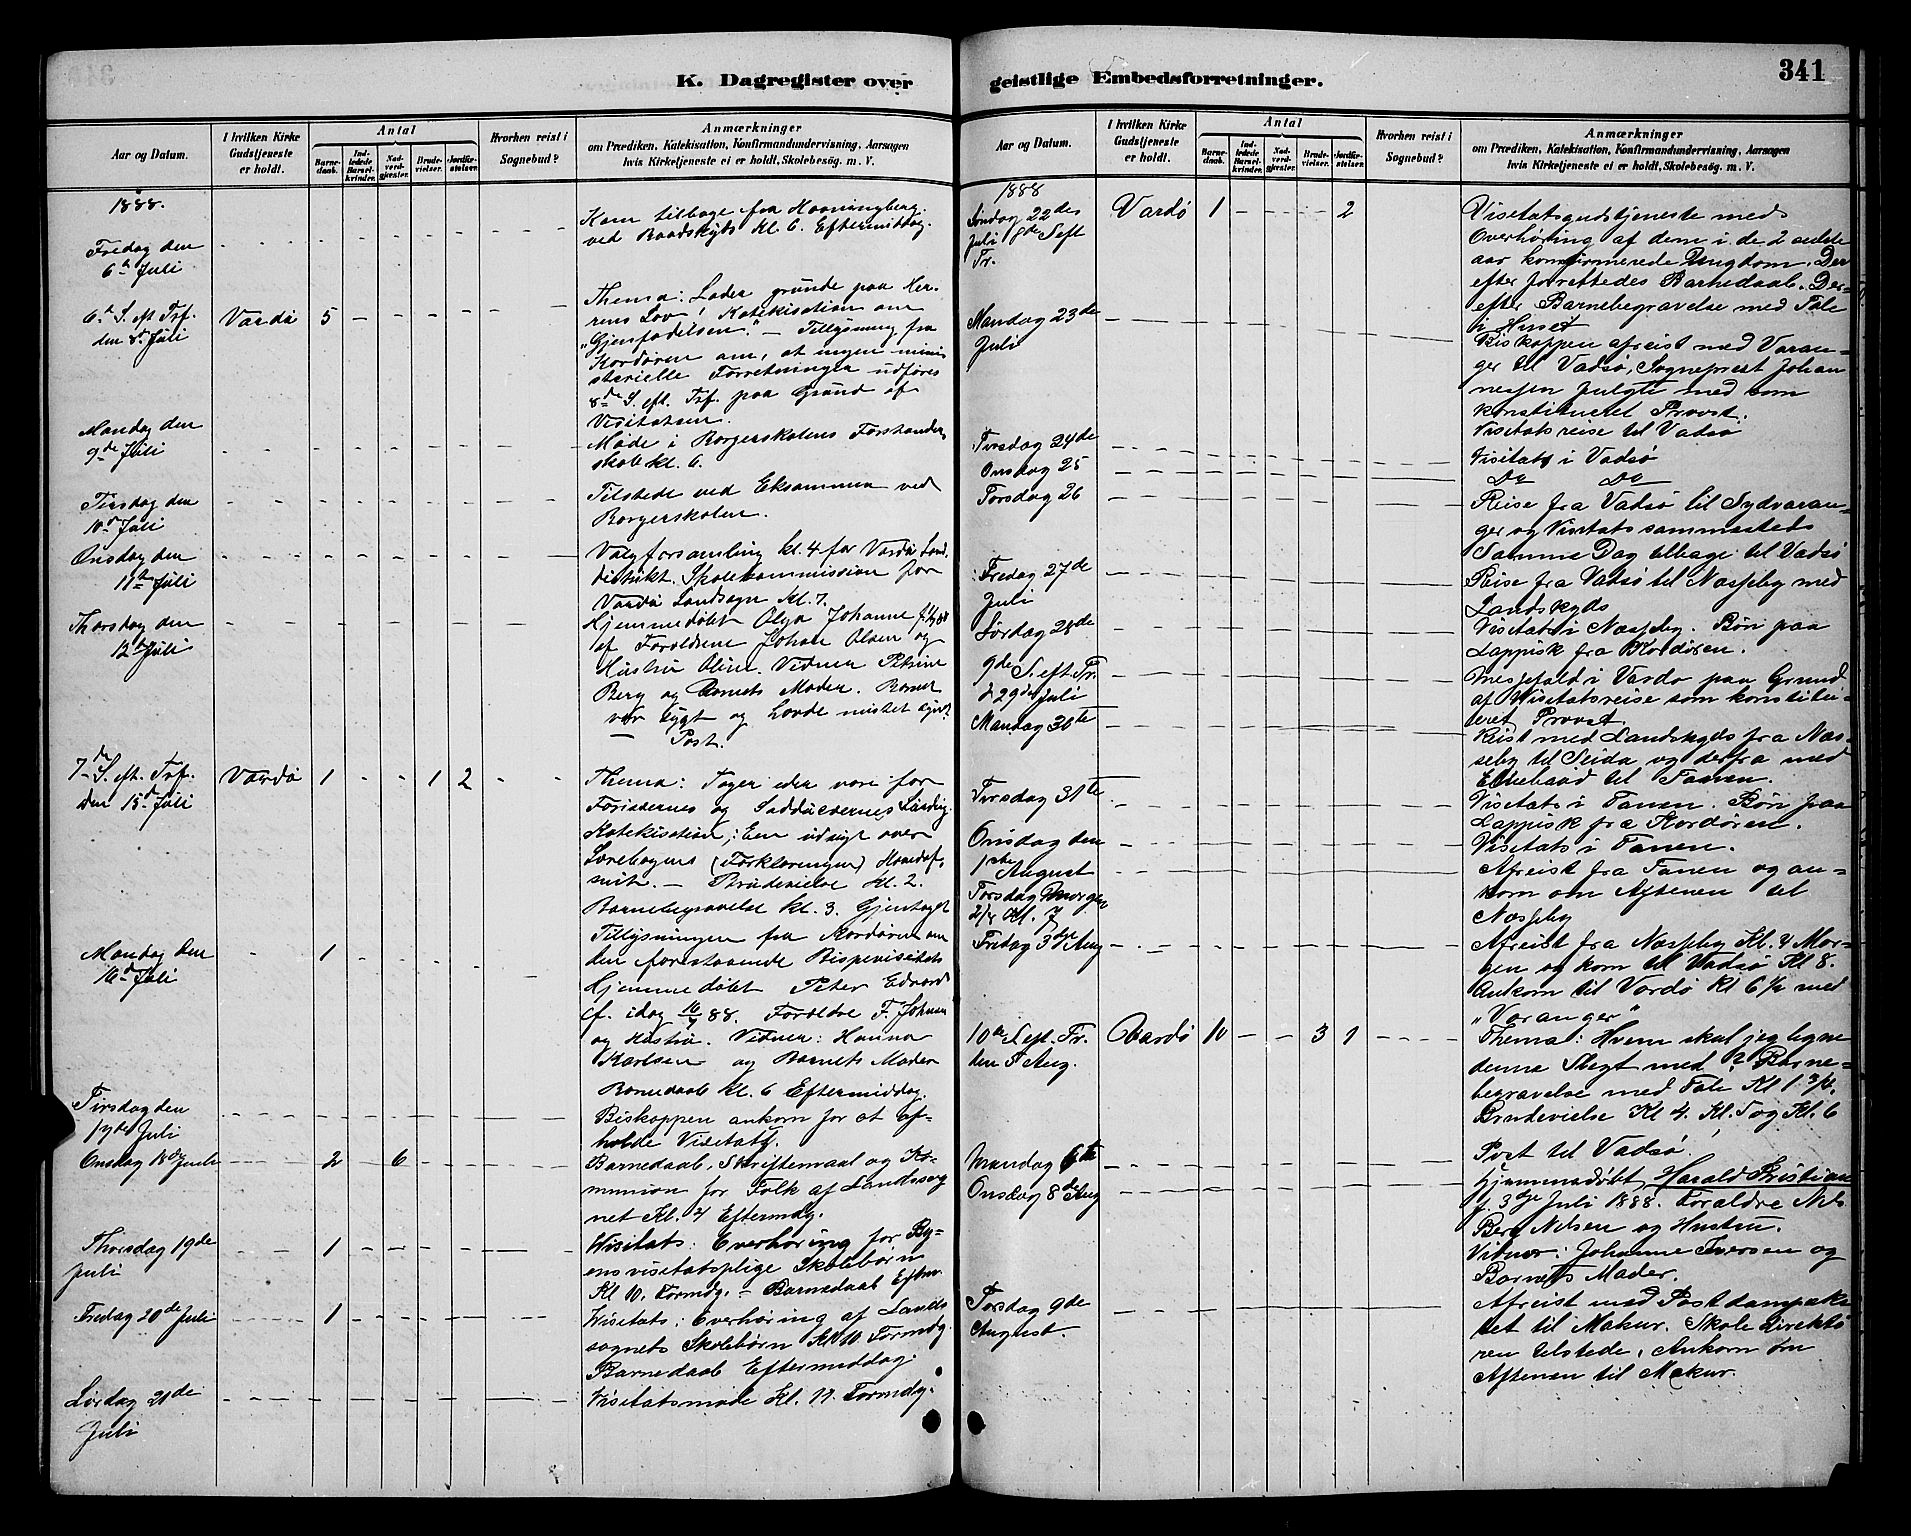 341
K. Dagregister over
geistlige Embedsforretninger.
Aar og Datum.
I hvilken Kirke
Gudstjeneste
er holdt.
Antal
Barne-
daab.
Ind-
ledede
Barsel-
kvinder.
Nad-
verd-
gjester.
Brude-
vielser.
Jordfæ-
stelser.
Hvorhen reist i
Sognebud?
Anmærkninger
om Prædiken, Katekisation, Konfirmandundervisning, Aarsagen
hvis Kirketjeneste ei er holdt, Skolebesøg. m. V.
1888.
Fredag den
6te Juli
Kom tilbage fra Havningberg
ved Baadskyds Kl. 6. Eftermiddag.
6te S. eft. Trf.
den 8de Juli
Vardø 5
Thema: Lader grunde paa Her-
rens Lov! Katekisation om
"Gjenfødelsen." — Tillysning fra
Kordøren om, at ingen mini-
sterielle Forretninger udføres
8de S. eft. Trf. paa Grund af
Visitatsen.
Mandag den
9de Juli
Møde i Borgerskolens Forstander-
skab kl. 6.
Tirsdag den
10de Juli
Tilstede ved Eksamen ved
Borgerskolen.
Onsdag den
11te Juli
Valgforsamling kl. 4 for Vardø Land-
distrikt. Skolekommission for
Vardø Landsogn Kl. 7.
Thorsdag den
12te Juli
Hjemmedøbt Olga Johanne
af Forældrene Johan Olsen og
Hustru Oline. Vidner
Berg og Barnets Moder. Barnet
var sygt og havde mistet
Post.
7de S. eft. Trf.
Den 15de Juli
Vardø 1 1 2
Thema: Tager eder vare for
Farisæernes og Sadducæernes Surdeig.
Katekisation: En udsigt over
Lærebogens (Forklaringen) Hovedaf-
snit. — Brudevielse Kl. 2.
Barnebegravelse kl. 3. Gjentaget
Tillysningen fra Kordøren om
den forestaaende Bispevisitats
Mandag den
16de Juli
1
Hjemmedøbt Peter Edvard
f. idag 16/7 88. Forældre F. Johnsen
og Hustru. Vidner: Hanna
Karlsen og Barnets Moder
Barnedaab kl. 6 Eftermiddag.
Tirsdag den
17de Juli
Biskoppen ankom for at af-
holde Visitats.
Onsdag 18de Juli
2 6
Barnedaab, Skriftemaal og Ko-
munion for Folk af Landsog
net Kl. 4 Eftermdg.
Thorsdag 19de
Juli
1
Visitats: Overhøring for By-
ens visitatsplige Skolebørn
Kl 10. Formdg. — Barnedaab Efterm
Fredag 20de Juli
1
Visitats: Overhøring af Lands
sognets Skolebørn Kl 10 Formdg.
Barnedaab Eftermiddag.
Lørdag 21de
Juli
Visitatsmøde Kl. 11 Formdg.
Aar og Datum.
I hvilken Kirke
Gudstjeneste
er holdt.
Antal
Barne-
daab.
Ind-
ledede
Barsel-
kvinder.
Nad-
verd-
gjester.
Brude-
vielser.
Jordfæ-
stelser.
Hvorhen reist i
Sognebud?
Anmærkninger
om Prædiken, Katekisation, Konfirmandundervisning, Aarsagen
hvis Kirketjeneste ei er holdt, Skolebesøg. m. V.
1888
Søndag 22des
Juli 8de S eft
Tr.
Vardø 1 2
Visitatsgudstjeneste med
Overhøring af dem i de 2 sidste
aar konfirmerede Ungdom. Der
efter forrettedes Barnedaab. Der-
efter Barnebegravelse med Tale
i Huset
Mandag 23de
Juli
Biskoppen afreist med Varan-
ger til Vadsø, Sogneprest Johan
nessen fulgte med som
konstitueret Provst.
Tirsdag 24de
Visitatsreise til Vadsø
Onsdag 25
Visitats i Vadsø
Torsdag 26
Do Do
Reise fra Vadsø til Sydvaran-
ger og Visitats sammesteds
Samme Dag tilbage til Vadsø
Fredag 27de
Juli
Reise fra Vadsø til Næsseby med
Landskyds
Lørdag 28de
Visitats i Næsseby. Bøn paa
Lappisk fra Kordøren.
9de S. eft. Tr.
d 29de Juli
Messefald i Vardø paa Grund
af Visitatsreise som konstitu-
eret Provst
Mandag 30te
Reist med Landskyds fra Næs-
seby til Seida og derfra med
Elvebaad til Tanen.
Tirsdag 31te
Visitats i Tanen. Bøn paa
Lappisk fra Kordøren.
Onsdag den
1ste August
Visitats i Tanen.
Torsdag Morgen
2/8 Kl. 7
Afreist fra Tanen og an-
kom om Aftenen til
Næsseby
Fredag 3die Aug
Afreist fra Næsseby Kl. 4 Mor-
gen og kom til Vadsø Kl 8.
Ankom til Vardø Kl 6 1/2 med
"Varanger"
10de S. eft. Tr.
den 5 Aug.
Vardø 10 3 1
Thema: Hvem skal jeg ligne
denne Slegt med? Barne-
begravelse med Tale Kl 1 3/4.
Brudevielse Kl 4. Kl. 5 og Kl. 6
Mandag 6te
Post til Vadsø.
Onsdag 8de Aug
Hjemmedøbt Harald Kristian
f. 3die Juli 1888. Forældre
Berg Nilsen og Hustru.
Vidner: Johanne Iversen og
Barnets Moder.
Torsdag 9de
August.
Afreist med Postdampski-
bet til Makur. Skoledirektø
ren tilstede. Ankom om
Aftenen til Makur.